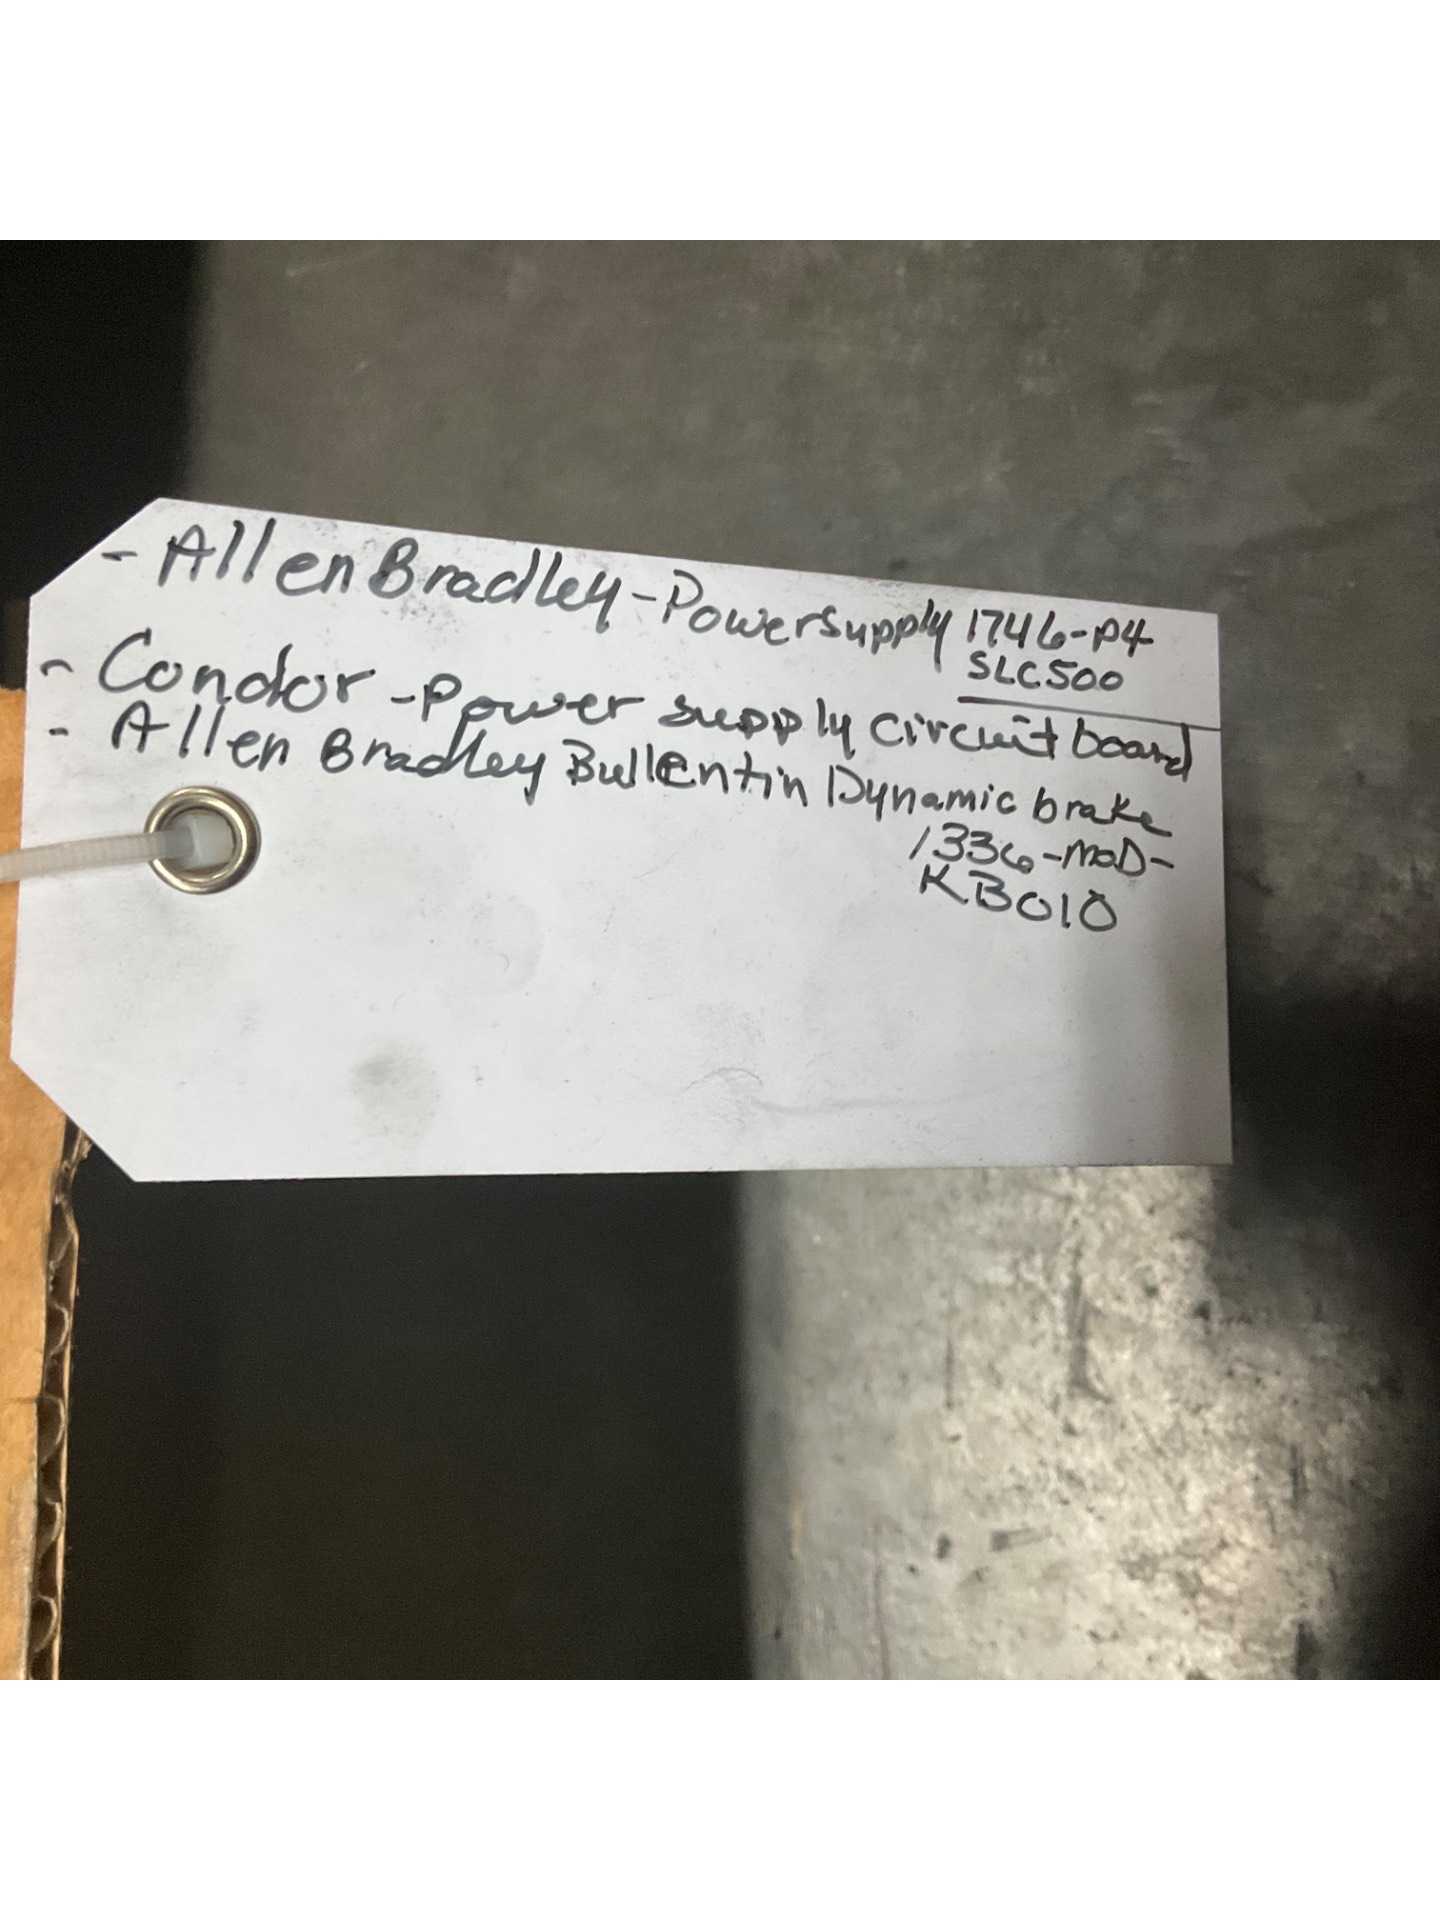 - Allen Bradley - Power Supply 1746-P4
SLC500
- Condor - Power supply circuit board
- Allen Bradley Bullentin Dynamic brake
1336-MOD-
KB010